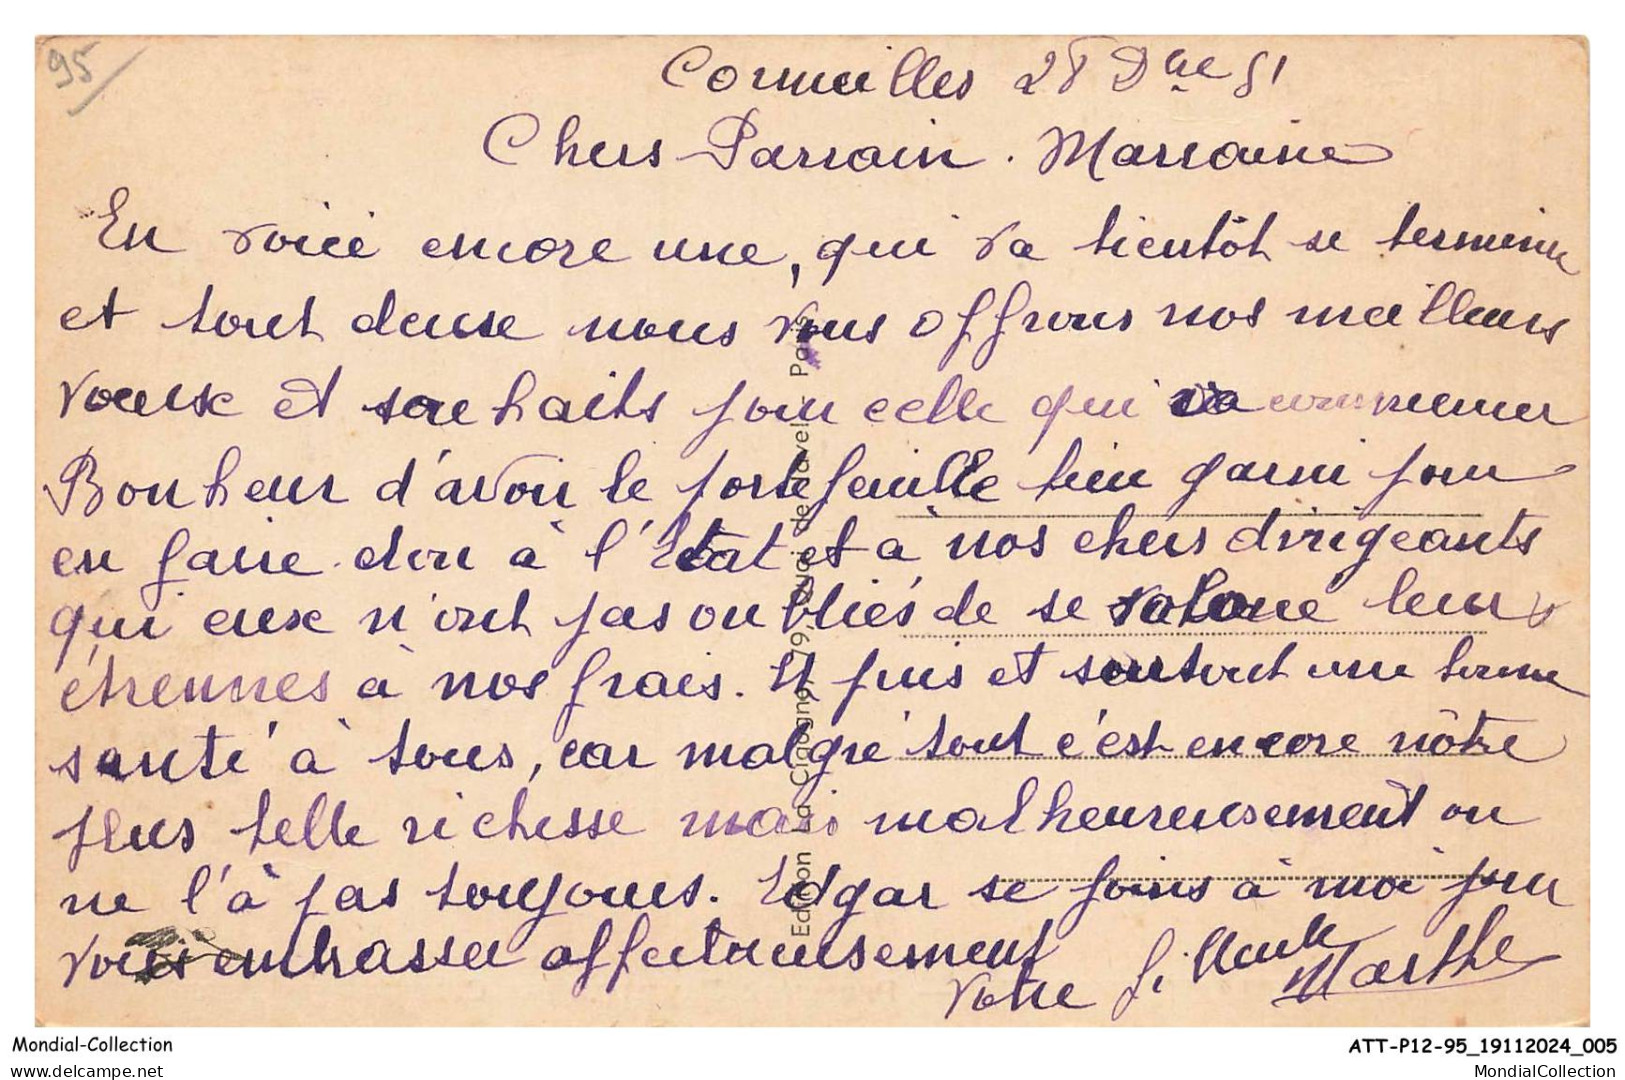 95
Cormeilles 28 Dbre 51
Chers Parrain. Marraine
En voici encore une, qui va bientôt se terminer
et tout deuse nous vous offrons nos meilleurs
voeux et souhaits pour celle qui va commencer
Bonheur d'avoir le portefeuille bien garni pour
en faire don à l'Etat et à nos chers dirigeants
qui eux n'ont pas oubliés de se voter leurs
étrennes à nos frais. Et puis et surtout une bonne
santé à tous, car malgré tout c'est encore nôtre
plus belle richesse mais malheureusement on
ne l'à pas toujours. Edgar se joins à moi pour
vous embrasser affectueusement
votre filleule Marthe
Edition La Cigogne, 79, Quai de Javel - Paris
Mondial-Collection
ATT-P12-95_19112024_005
www.delcampe.net
MondialCollection